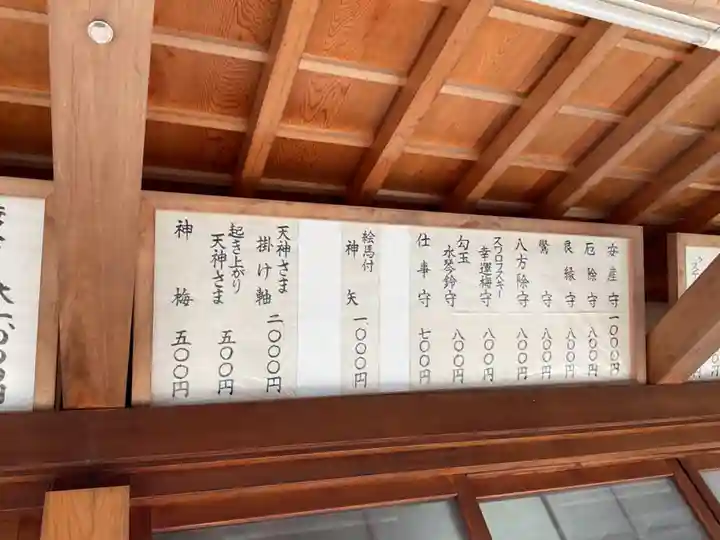 安産守 一、〇〇〇円
厄除守 八〇〇円
良縁守 八〇〇円
鷽守 八〇〇円
八方除守 八〇〇円
スワロフスキー
幸運梅守 八〇〇円
勾玉
水琴鈴守 八〇〇円
仕事守 七〇〇円
絵馬付
神矢 一、〇〇〇円
天神さま
掛け軸 二、〇〇〇円
起き上がり
天神さま 五〇〇円
神梅 五〇〇円